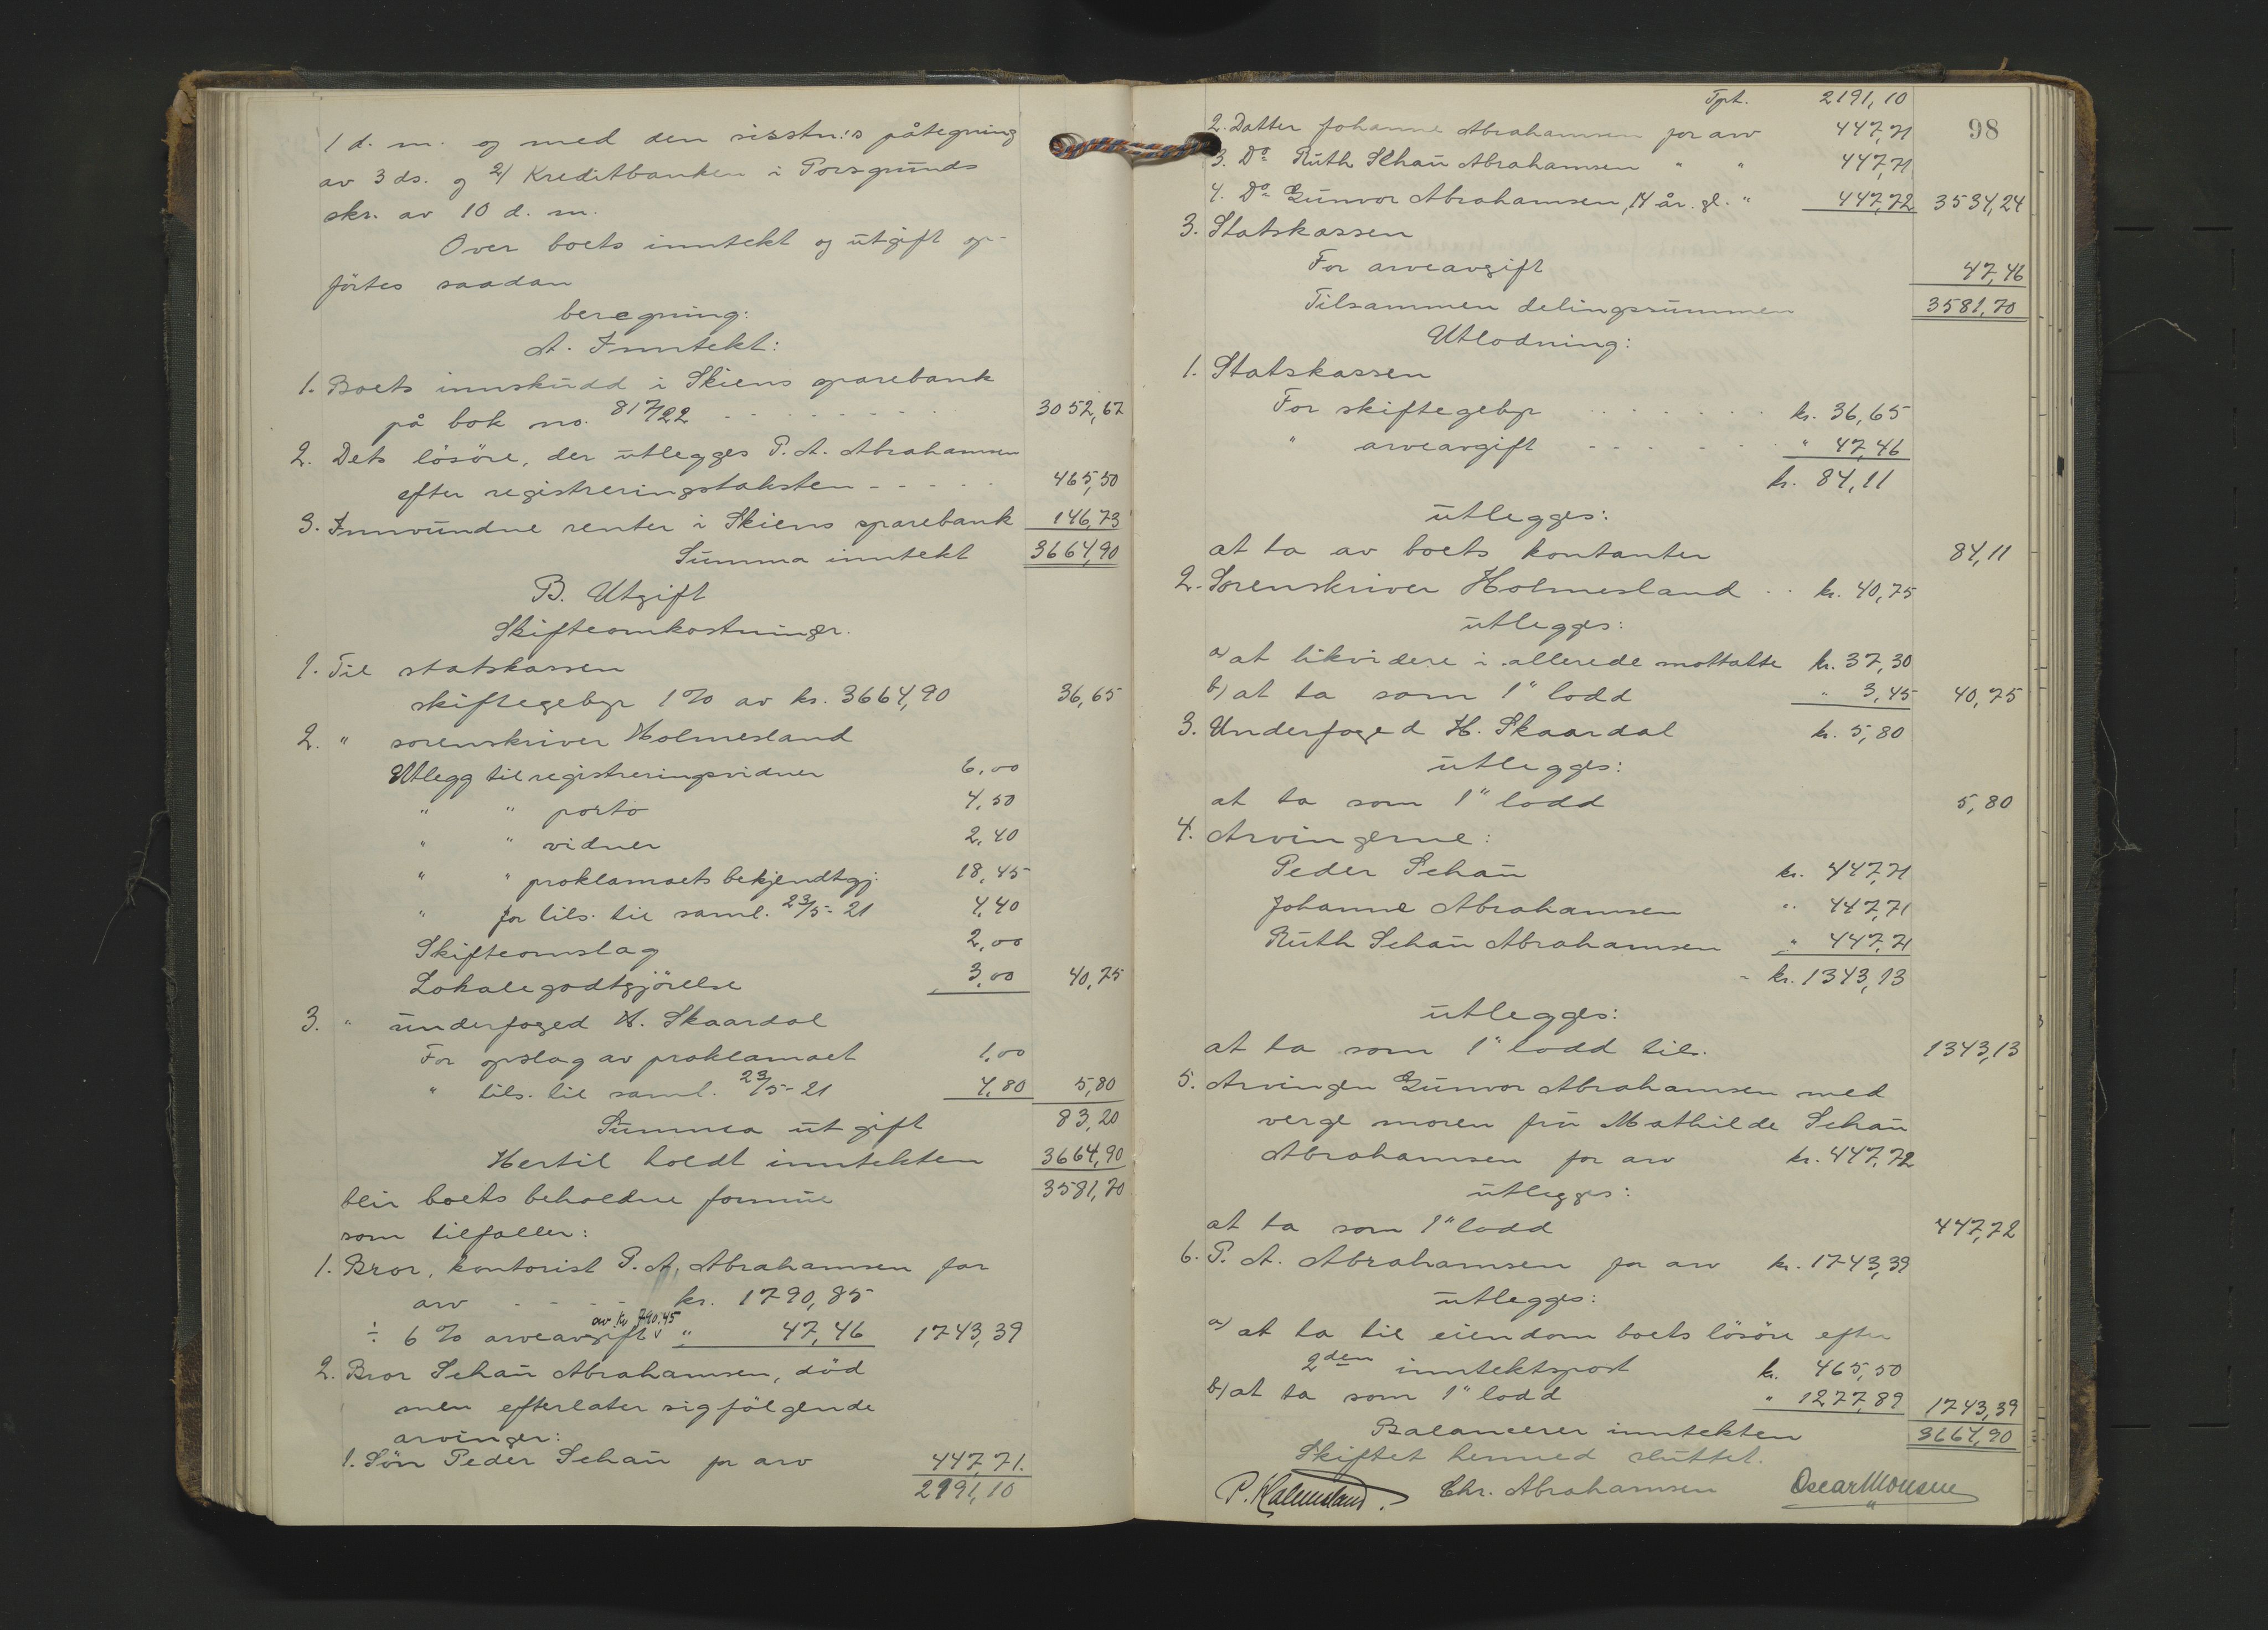 1 d. m. og med den sisstn:s påtegning
av 3 ds. og 2/ Kreditbanken i Porsgrunds
skr. av 10 d. m.
Over boets inntekt og utgift op-
förtes saadan
beregning:
A. Inntekt:
1. Boets innskudd i Skiens sparebank
på bok no. 817/22 - - - - - - - - 3052,67
2. Dets lösöre, der utlegges P. A. Abrahamsen
efter registreringstaksten - - - - - 465,50
3. Innvundne renter i Skiens sparebank 146,73
Summa inntekt 3664,90
B. Utgift
Skifteomkostninger.
1. Til statskassen
skiftegebyr 1% av kr. 3664,90 36,65
2. " sorenskriver Holmesland
Utlegg til registreringsvidner 6,00
" " porto 4,50
" " vidner 2,40
" " proklamaets bekjendtgj: 18,45
" for tils. til saml. 23/5-21 4,40
Skifteomslag 2,00
Lokalegodtgjörelse 3,00 40,75
3. " underfoged H. Skaardal
For opslag av proklamaet 1,00
" tils. til saml. 23/5-21 4,80 5,80
Summa utgift 83,20
Hertil holdt inntekten 3664,90
blir boets beholdne formue 3581,70
som tilfaller:
1. Bror, kontorist P. A. Abrahamsen for
arv - - - - kr. 1790,85
av kr 790,45
÷ 6% arveavgift v " 47,46 1743,39
2. Bror Schau Abrahamsen, död
men efterlater sig fölgende
arvinger:
1. Sön Peder Schau for arv 447,71.
2191,10
Tpt. 2191,10
98
2. Datter Johanne Abrahamsen for arv 447,71
3. Do Ruth Schau Abrahamsen " " 447,71
4. Do Gunvor Abrahamsen, 14 år. gl. " 447,72 3534,24
3. Statskassen
For arveavgift 47,46
Tilsammen delingssummen 3581,70
Utlodning:
1. Statskassen
For skiftegebyr - - - - - - - kr. 36,65
" arveavgift - - - - - - " 47,46
kr. 84,11
utlegges:
at ta av boets kontanter 84,11
2. Sorenskriver Holmesland - - kr. 40,75
utlegges:
a) at likvidere i allerede mottatte kr. 37,30
b) at ta som 1" lodd " 3,45 40,75
3. Underfoged H. Skaardal kr. 5,80
utlegges:
at ta som 1" lodd 5,80
4. Arvingerne:
Peder Schau kr. 447,71
Johanne Abrahamsen " 447,71
Ruth Schau Abrahamsen " 447,71
- kr. 1343,13
utlegges:
at ta som 1" lodd tils. 1343,13
5. Arvingen Gunvor Abrahamsen med
verge moren fru Mathilde Schau
Abrahamsen for arv kr. 447,72
utlegges:
at ta som 1" lodd 447,72
6. P. A. Abrahamsen for arv kr. 1743,39
utlegges:
a) at ta til eiendom boets lösöre efter
2den inntektspost kr. 465,50
b) at ta som 1" lodd " 1277,89 1743,39
Balancerer inntekten 3664,90
Skiftet hermed sluttet.
P. Holmesland. Chr. Abrahamsen Oscar Monsen